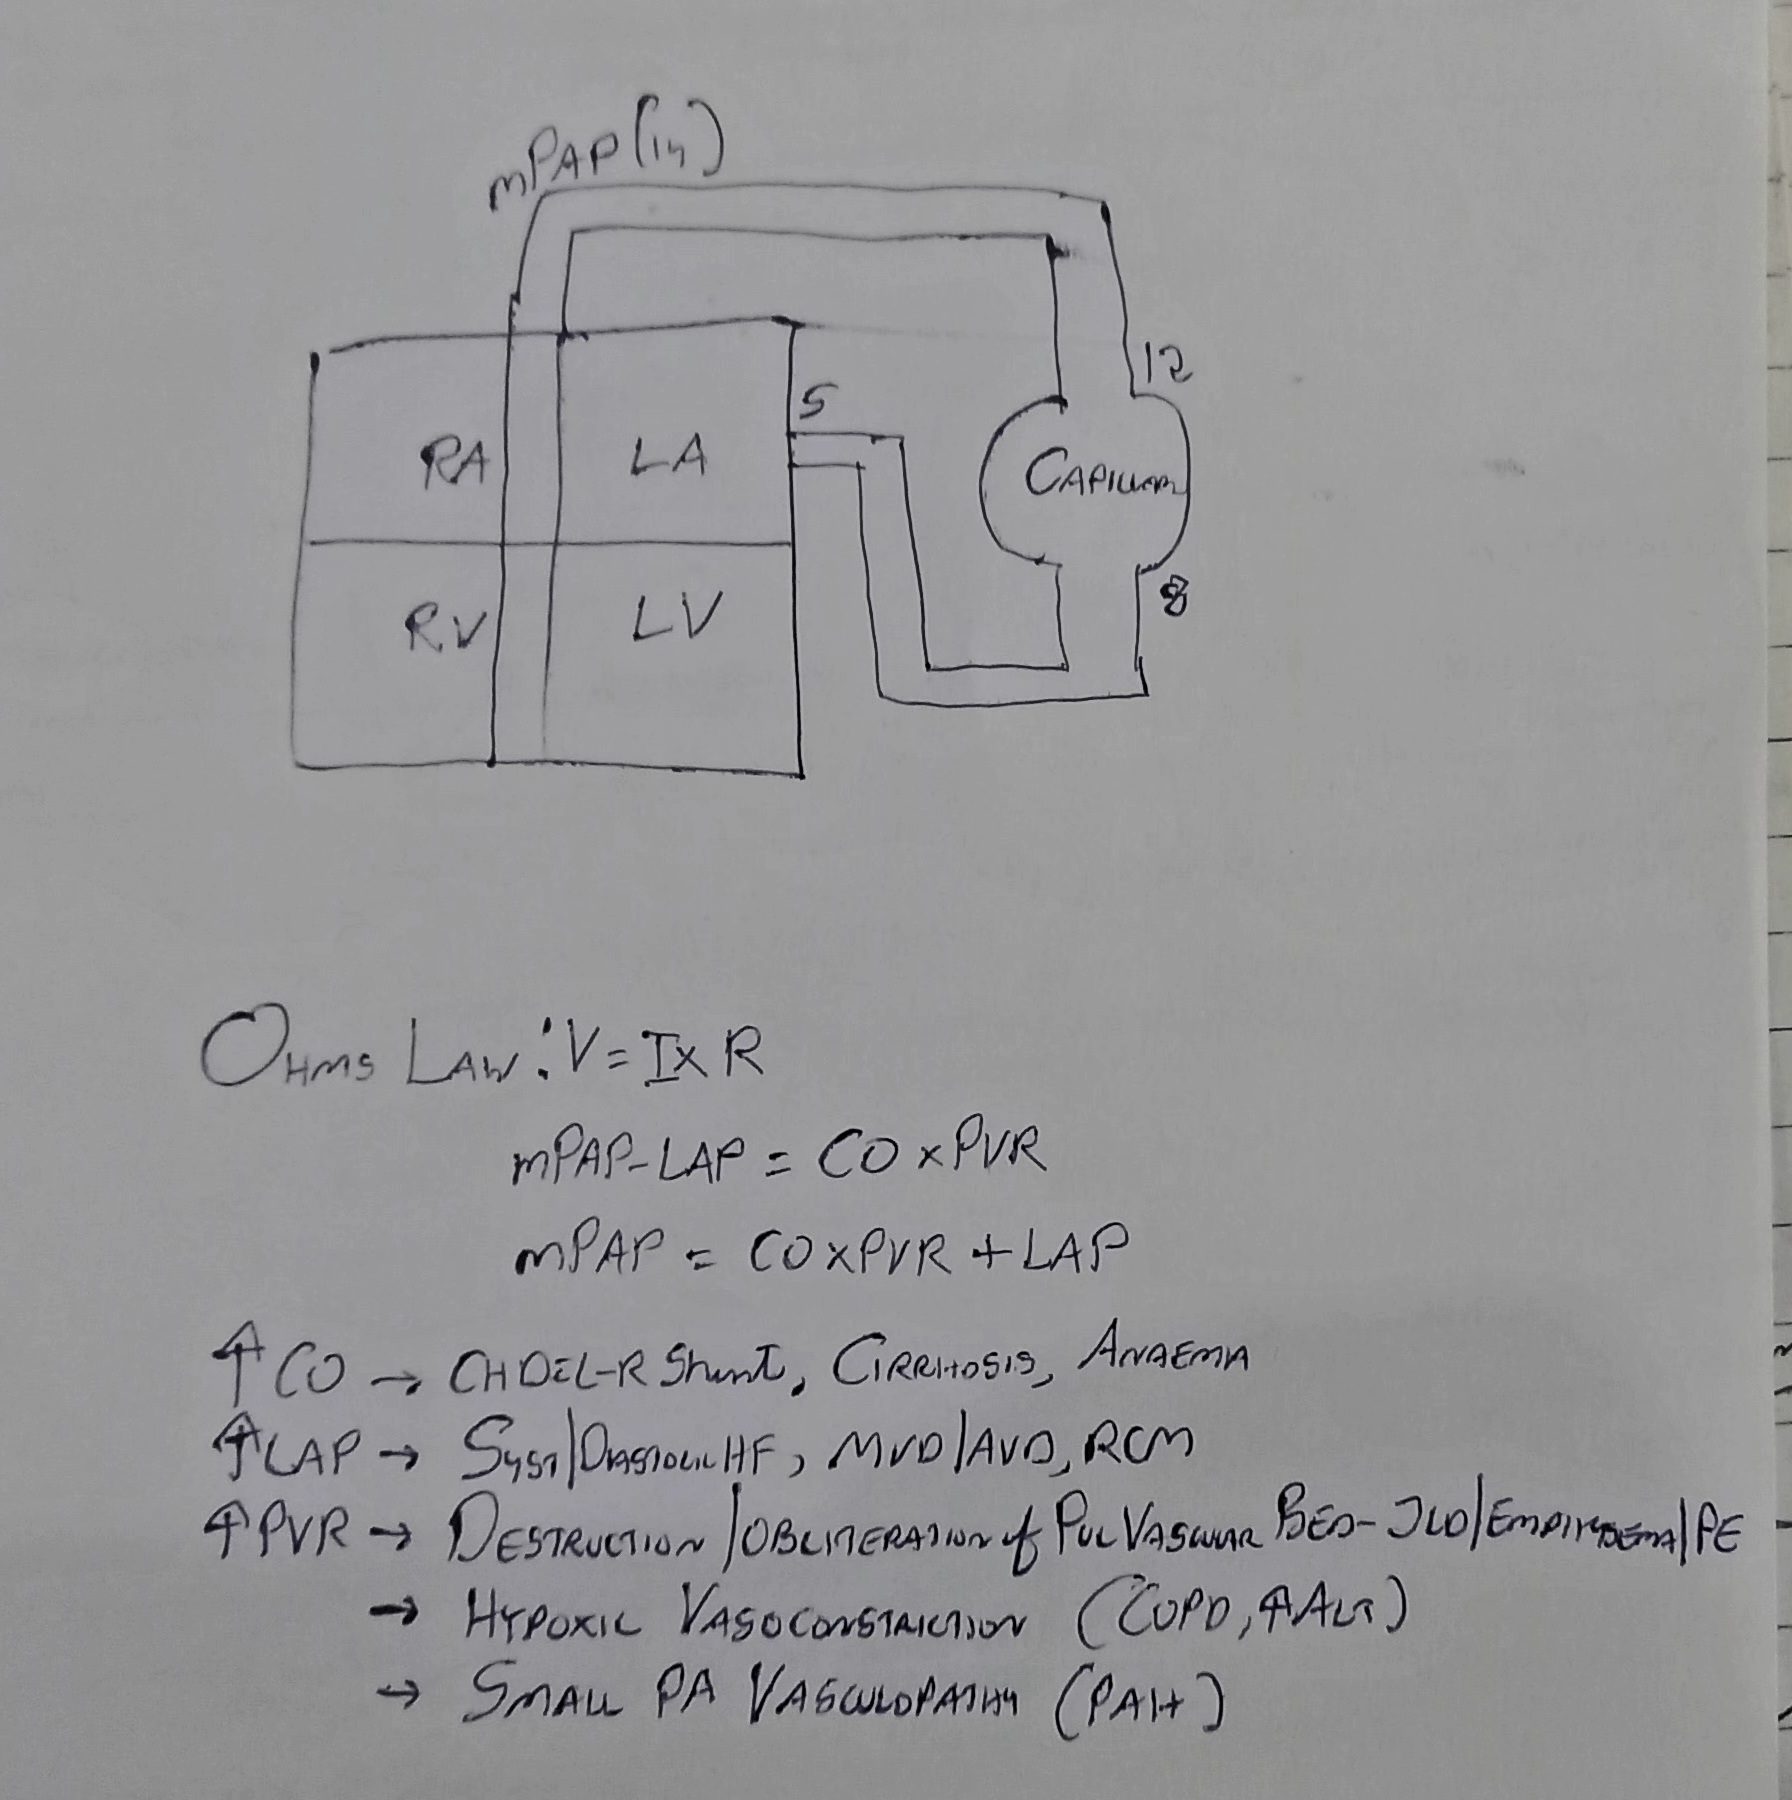 mPAP (14)
12
5
RA LA CAPILLARY
8
RV LV
OHMS LAW: V = I x R
mPAP-LAP = CO x PVR
mPAP = CO x PVR + LAP
↑ CO → CHD L-R Shunt, CIRRHOSIS, ANAEMIA
↑ LAP → SYST/DIASTOLIC HF, MVD/AVD, RCM
↑ PVR → DESTRUCTION/OBLITERATION of PUL VASCULAR BED - ILD/EMPHYSEMA/PE
→ HYPOXIC VASOCONSTRICTION (COPD, ↑ ALT)
→ SMALL PA VASCULOPATHY (PAH)